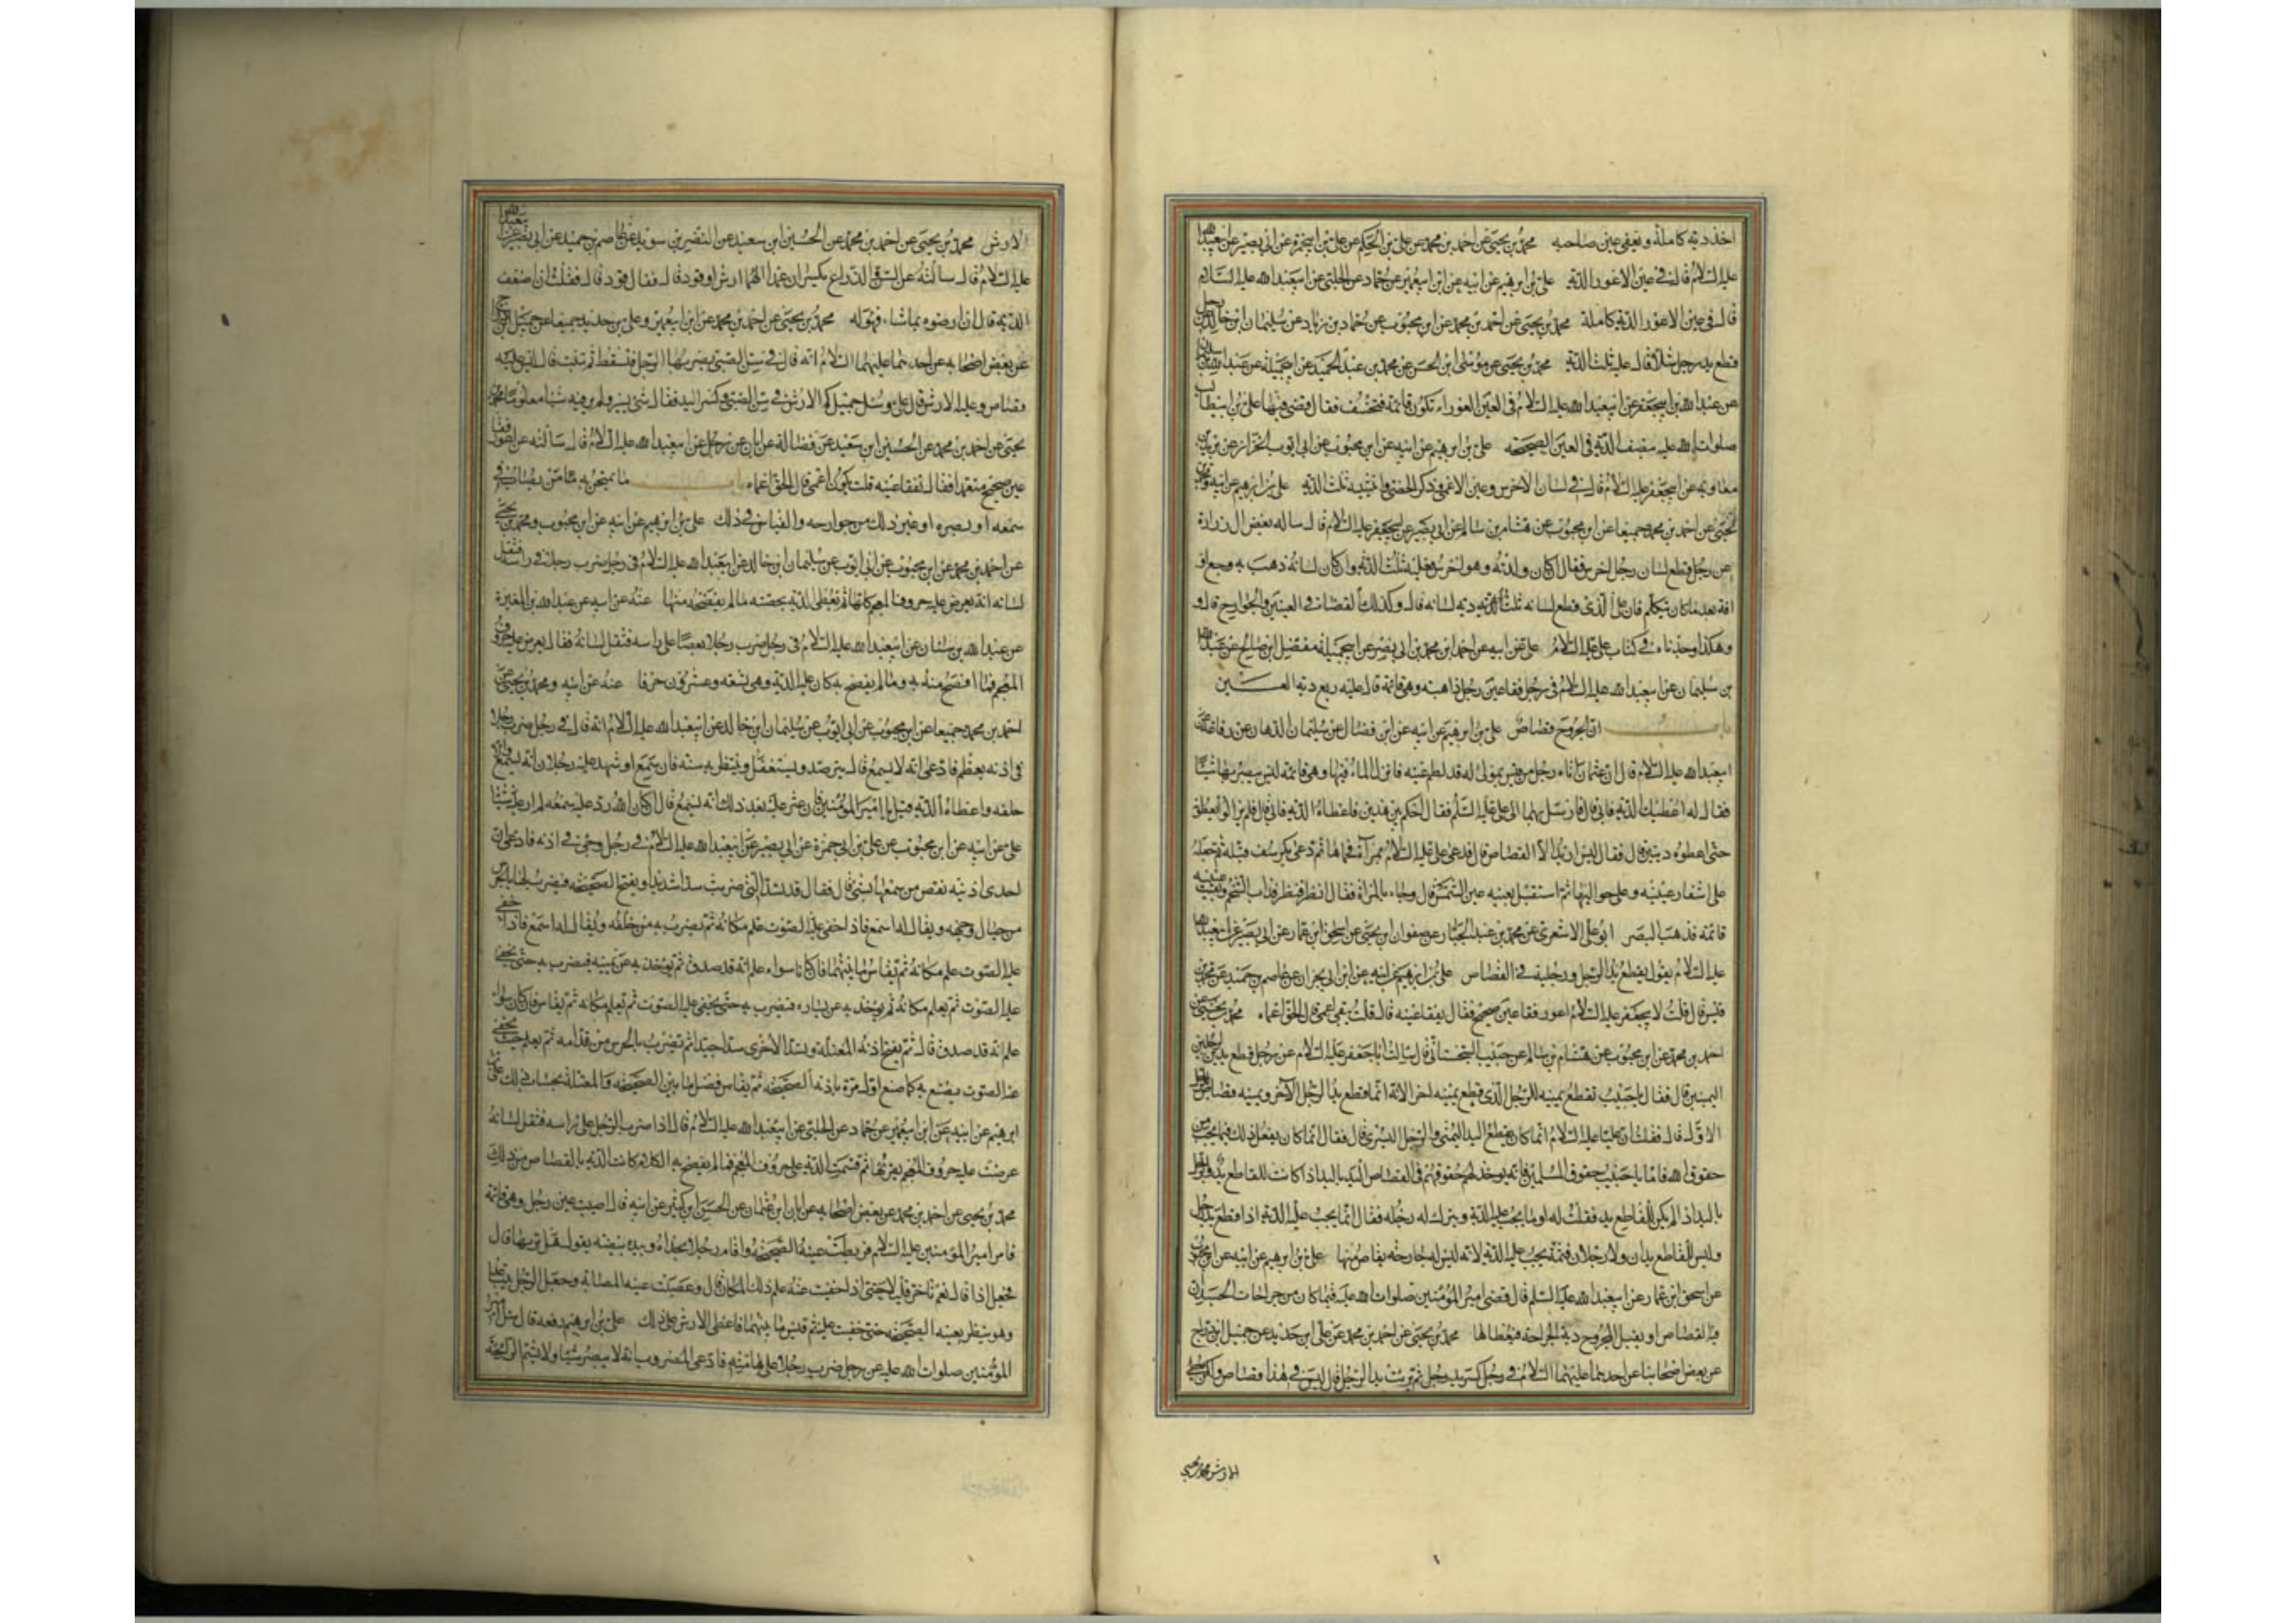 اخذ ديه كاملة و يعفى عن عين صاحبه محمد بن يحيى عن احمد بن محمد عن على بن الحكم عن على بن ابى حمزة عن ابى بصير عن ابى عبد الله
عليه السلام قال فى عين الاعور الدية على بن ابرهيم عن ابيه عن ابن ابى عمير عن حماد عن الحلبى عن ابى عبد الله عليه السلام
قال فى عين الاعور الدية كاملة محمد بن يحيى عن احمد بن محمد عن ابن محبوب عن حماد بن زياد عن سليمان ابن خالد فى رجل
قطع يد رجل شلاء قال عليه ثلث الدية محمد بن يحيى عن موسى ابن الحسن عن محمد بن عبد الحميد عن ابى جميلة عن عبد الله بن سليمان
عن عبد الله بن ابى جعفر عن ابى عبد الله عليه السلام فى العين العوراء تكون قائمة فتخسف فقال قضى فيها على بن ابى طالب
صلوات الله عليه نصف الدية فى العين الصحيحة على بن ابرهيم عن ابيه عن ابن محبوب عن ابى ايوب الخزاز عن بريد بن
معاوية عن ابى جعفر عليه السلام قال فى لسان الاخرس و عين الاعمى و ذكر الخصى و انثييه ثلث الدية على بن ابرهيم عن ابيه و محمد بن
يحيى عن احمد بن محمد جميعا عن ابن محبوب عن هشام بن سالم عن ابى بصير عن ابى جعفر عليه السلام قال ساله بعض ال زرارة
عن رجل قطع لسان رجل اخرس فقال ان كان ولدته و هو اخرس فعليه ثلث الدية و ان كان لسانه ذهب به وجع او
افة بعد ما كان يتكلم فان على الذى قطع لسانه ثلث الدية دية لسانه قال و كذلك القضاء فى العينين و الجوارح قال و
هكذا وجدناه فى كتاب على عليه السلام على عن ابيه عن احمد ابن محمد بن ابى نصر عن ابى جميلة مفضل ابن صالح عن عبد الله
بن سليمان عن ابى عبد الله عليه السلام فى رجل فقا عين رجل ذاهبة و هى قائمة قال عليه ربع دية العين
باب ان الجروح قصاص على بن ابرهيم عن ابيه عن ابن فضال عن سليمان الدهان عن رفاعة عن
ابى عبد الله عليه السلام قال ان عثمان اتاه رجل من قيس بمولى له قد لطم عينه فانزل الماء فيها و هى قائمة ليس يبصر بها شيئا
فقال له اعطيك الدية فابى قال فارسل بهما الى على عليه السلم فقال احكم بين هذين فاعطاه الدية فابى قال فلم يزالوا يعطونه
حتى اعطوه ديتين قال فقال ليس اريد الا القصاص قال فدعى على عليه السلام بمرآة فحماها ثم دعى بكرسف فبله ثم جعله
على اشفار عينيه و على حواليها ثم استقبل بعينه عين الشمس قال و جاء بالمرآة فقال انظر فنظر فذاب الشحم و بقيت عينه
قائمة فذهب البصر ابو على الاشعرى عن محمد بن عبد الجبار عن صفوان ابن يحيى عن اسحق ابن عمار عن ابى بصير عن ابى عبد الله
عليه السلام يقول يقطع يد الرجل و رجليه فى القصاص على بن ابرهيم عن ابيه عن ابن ابى نجران عن عاصم بن حميد عن محمد بن
قيس قال قلت لابى جعفر عليه السلام اعور فقا عين صحيح فقال يفقا عينه قال قلت يبقى اعمى قال الحق اعماه محمد بن يحيى عن
احمد بن محمد عن ابن محبوب عن هشام بن سالم عن حبيب السجستانى قال سالت ابا جعفر عليه السلام عن رجل قطع يدين لرجلين
اليمينين قال فقال يا حبيب تقطع يمينه للرجل الذى قطع يمينه اولا
الاول قال فقلت ان عليا عليه السلام انما كان يقطع اليد اليمنى و الرجل اليسرى قال فقال انما كان يفعل ذلك فيما يجب من
حقوق الله فاما يا حبيب حقوق المسلمين فانه يوخذ لهم حقوقهم فى القصاص اليد باليد اذا كانت للقاطع يد
باليد اذا لم يكن للقاطع يد فقلت له اوما يجب عليه الدية و يترك له رجله فقال انما يجب عليه الدية اذا قطع يد رجل
و ليس للقاطع يدان ولا رجلان فثمة يجب عليه الدية لانه ليس له جارحة يقاص منها على بن ابرهيم عن ابيه عن ابن محبوب
عن اسحق ابن عمار عن ابى عبد الله عليه السلم قال قضى امير المؤمنين صلوات الله عليه فيما كان من جراحات الجسد ان
فيها القصاص او يقبل المجروح دية الجراحة فيعطاها محمد بن يحيى عن احمد بن محمد عن على ابن حديد عن جميل ابن دراج
عن بعض اصحابنا عن احدهما عليهما السلام فى رجل كسر يد رجل ثم برئت يد الرجل قال ليس فى هذا قصاص و لكن يعطى
الارش محمد بن يحيى
الارش محمد بن يحيى عن احمد بن محمد عن الحسين ابن سعيد عن النضر بن سويد عن عاصم بن حميد عن ابى بصير عن ابى عبد الله
عليه السلام قال سالته عن السن و الذراع يكسران عمدا الهما ارش او قود قال فقال قود قال فقلت ان اضعف
الدية قال ان ارضوه بما شاء فهو له محمد بن يحيى عن احمد بن محمد عن ابن ابى عمير و على بن حديد جميعا عن جميل بن دراج
عن بعض اصحابه عن احدهما عليهما السلام انه قال فى سن الصبى يضربها الرجل فتسقط ثم تنبت قال ليس عليه
قصاص و عليه الارش قال على و سئل جميل كم الارش فى سن الصبى و كسر اليد فقال شئ يسير و لم ير فيه شيئا معلوما محمد بن
يحيى عن احمد بن محمد عن الحسين ابن سعيد عن فضالة عن ابان عن رجل عن ابى عبد الله عليه السلام قال سالته عن اعور فقا
عين صحيح متعمدا فقال تفقا عينه قلت يكون اعمى قال الحق اعماه باب ما يمتحن به من يصاب فى
سمعه او بصره او غير ذلك من جوارحه و القياس فى ذلك على بن ابرهيم عن ابيه عن ابن محبوب و محمد بن يحيى
عن احمد بن محمد عن ابن محبوب عن ابى ايوب عن سليمان ابن خالد عن ابى عبد الله عليه السلام فى رجل ضرب رجلا فى راسه فثقل
لسانه انه يعرض عليه حروف المعجم كلها ثم يعطى الدية بحصة ما لم يفصحه منها عنه عن ابيه عن عبد الله بن المغيرة
عن عبد الله بن سنان عن ابى عبد الله عليه السلام فى رجل ضرب رجلا بعصا على راسه فثقل لسانه فقال يعرض عليه حروف
المعجم فما افصح منه به و ما لم يفصح به كان عليه الدية و هى تسعة و عشرون حرفا عنه عن ابيه و محمد بن يحيى عن
احمد بن محمد جميعا عن ابن محبوب عن ابى ايوب عن سليمان ابن خالد عن ابى عبد الله عليه السلام انه قال فى رجل ضرب رجلا
فى اذنه بعظم فادعى انه لا يسمع قال يترصد و يستغفل و ينتظر به سنة فان سمع او شهد عليه رجلان انه يسمع و الا
حلفه و اعطاه الدية قيل يا امير المؤمنين فان عثر عليه بعد ذلك انه يسمع قال ان كان الله رد عليه سمعه لم ار عليه شيئا
على عن ابيه عن ابن محبوب عن على بن ابى حمزة عن ابى بصير عن ابى عبد الله عليه السلام فى رجل وجئ فى اذنه فادعى ان
احدى اذنيه نقص من سمعها شئ قال فقال قد تسد التى ضربت سدا شديدا و يفتح الصحيحة فيضرب لها بالجرس
من حيال وجهه و يقال له اسمع فاذا خفى عليه الصوت علم مكانه ثم يضرب به من خلفه و يقال له اسمع فاذا خفى
عليه الصوت علم مكانه ثم يقاس ما بينهما فان كانا سواء علم انه قد صدق ثم يوخذ به عن يمينه فيضرب به حتى يخفى
عليه الصوت ثم يعلم مكانه ثم يوخذ به عن يساره فيضرب به حتى يخفى عليه الصوت ثم يعلم مكانه ثم يقاس فان كان سواء
علم انه قد صدق قال ثم يفتح اذنه المعتلة و يسد الاخرى سدا جيدا ثم يضرب بالجرس من قدامه ثم يعلم حيث يخفى
عنه الصوت يصنع به كما صنع اول مرة باذنه الصحيحة ثم يقاس فضل ما بين الصحيحة و المعتلة بحساب ذلك على بن
ابرهيم عن ابيه عن ابن ابى عمير عن حماد عن الحلبى عن ابى عبد الله عليه السلام قال اذا ضرب الرجل على راسه فثقل لسانه
عرضت عليه حروف المعجم يقراها ثم قسمت الدية على حروف المعجم فما لم يفصح به الكلام كانت الدية بالقصاص من ذلك
محمد بن يحيى عن احمد بن محمد عن بعض اصحابه عن ابان ابن عثمان عن الحسن ابن كثير عن ابيه قال اصيبت عين رجل و هى قائمة
فامر امير المؤمنين عليه السلام فربطت عينه الصحيحة و اقام رجلا بحذاه و بيده بيضة يقول هل تريها قال
فجعل اذا قال نعم تاخر قليلا حتى اذا خفيت عنه علم ذلك المكان قال و عصبت عينه المصابة و جعل الرجل يتباعد
و هو ينظر بعينه الصحيحة حتى خفيت عليه ثم قيس ما بينهما فاعطى الارش على ذلك على بن ابرهيم رفعه قال سئل امير
المؤمنين صلوات الله عليه عن رجل ضرب رجلا على هامته فادعى المضروب انه لا يبصر شيئا و لا يشم الرائحة